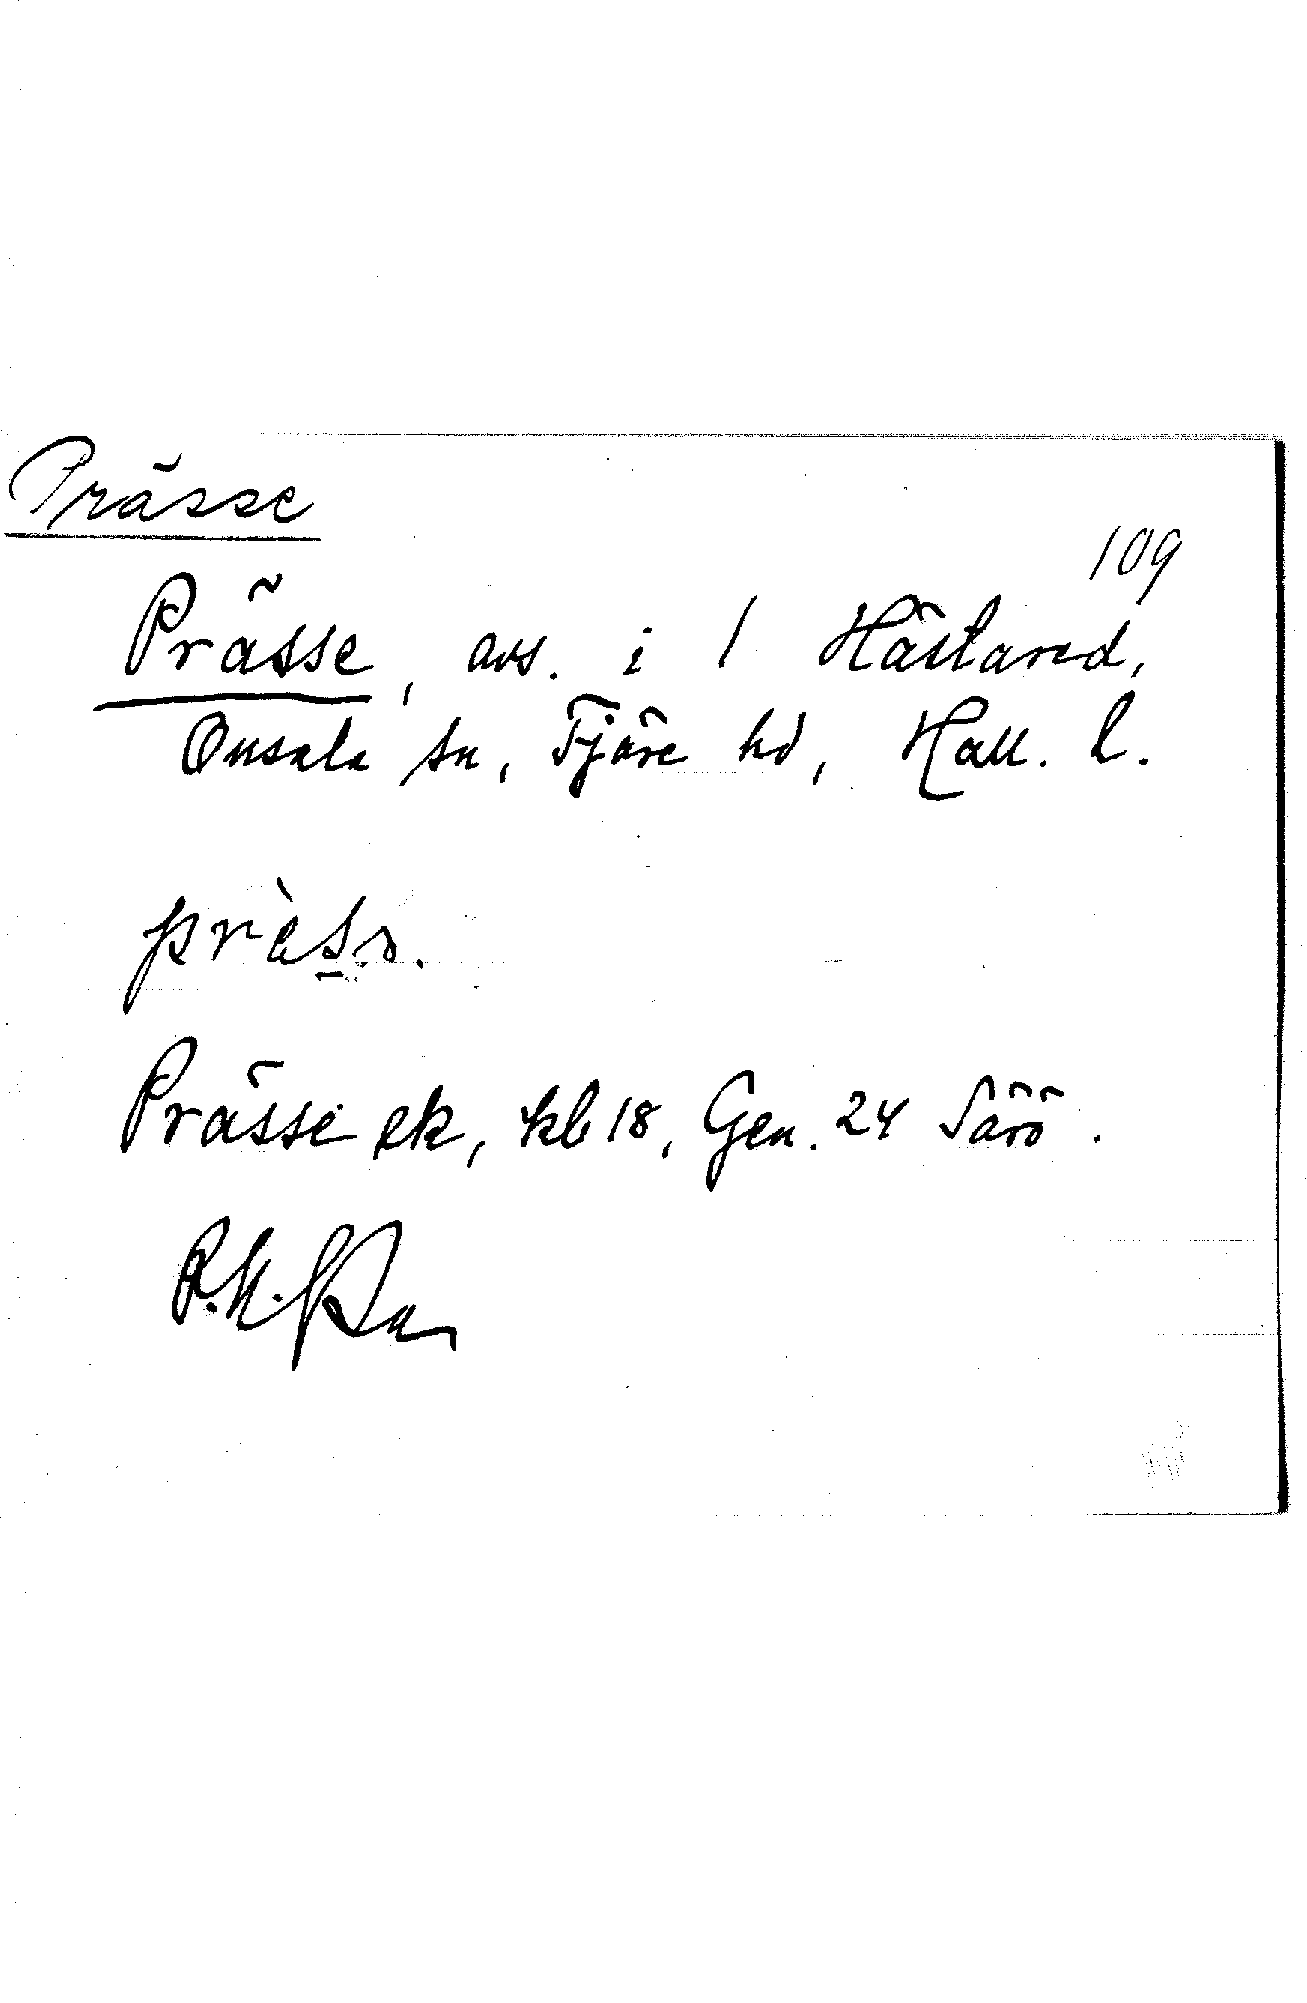 Prässe
109
Prässe, avs. i 1 Hästared,
Onsala sn, Fjäre hd, Hall. l.
prɛ̀sə.
Prässe ek, kb 18, Gen. 24 Särö.